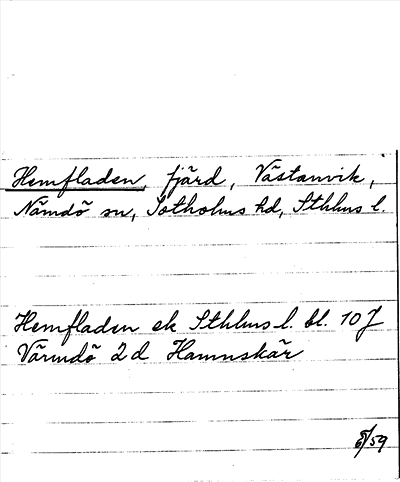 Hemfladen, fjärd, Västanvik,
Nämdö sn, Sotholms hd, Sthlms l.
Hemfladen ek Sthlms l. bl. 10 J
Värmdö 2d Hamnskär
/59